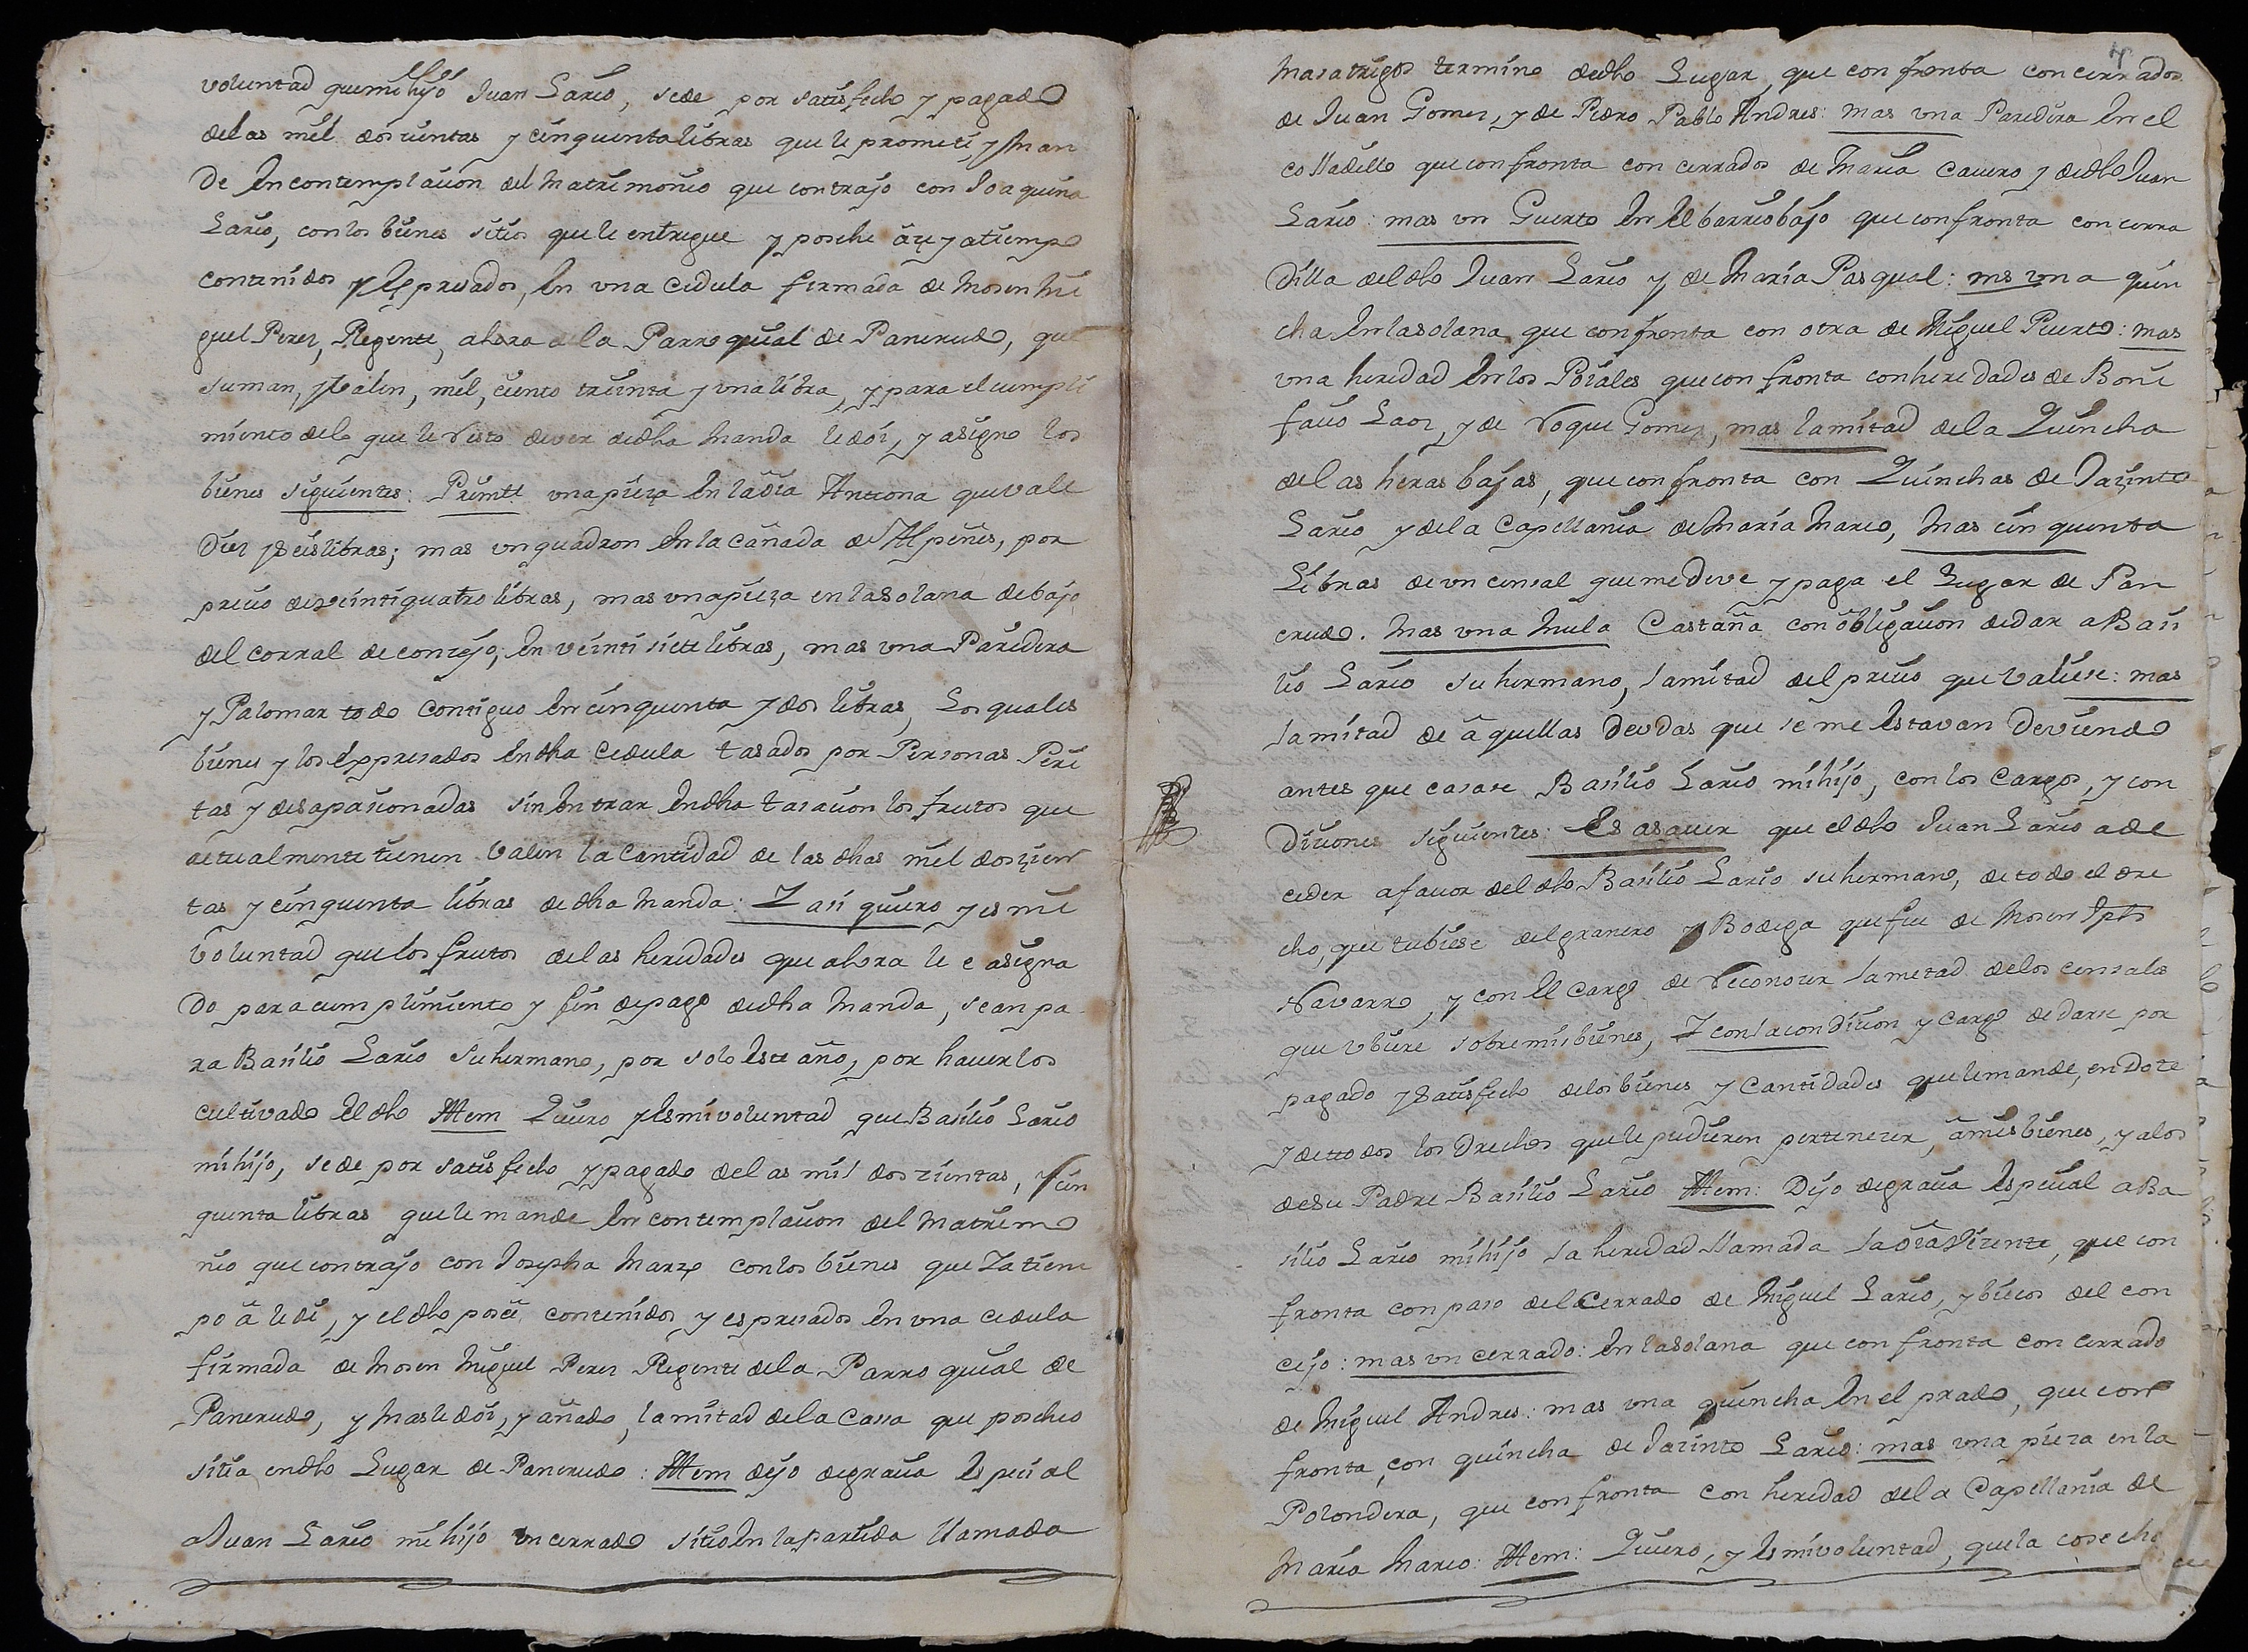 voluntad que mi hijo Juan Lario, sede por satisfecho y pagado
delas mil doscientas y cinquenta libras que le prometi, y man
de en contemplacion del Matrimonio que contrajo con Joaquina
Lario, con los bienes sitios que le entregue y posehe
contenidos y expresados, en una Cedula firmada de Mosen Mi
guel Perez, Regente, ahora dela Parroquial de Pancrudo, que
suman, y valen, mil, ciento treinta y una libra, y para el cumpli
miento delo que le resta dever dedha Manda le doi, y asigno los
bienes siguientes: Primte una pieza en la Antona que vale
Diez y seis libras; mas un quadron en la cañada de Alpeñes, por
precio de veinti quatro libras, mas una pieza en la Solana debajo
del corral de conzejo, en veinti siete libras, mas una Paridera
y Palomar todo contiguo en cinquenta y dos libras, Los quales
bienes y los expresados en dha Cedula tasados por Personas Peri
tas y desapasionadas sin entrar en dha tasacion los frutos que
actualmente tienen valen la Cantidad de las dhas mil doscien
tas y cinquenta libras de dha Manda: Y asi quiero y es mi
voluntad que los frutos delas heredades que ahora le e asigna
do para cumplimiento y fin de pago dedha Manda, sean pa
ra Basilio Lario su hermano, por solo este año, por haverlos
cultivado el dho Ittem Quiero y es mi voluntad que Basilio Lario
mi hijo, sede por satisfecho y pagado delas mil doscientas, y cin
quenta libras que le mande en contemplacion del Matrimo
nio que contrajo con Josepha Marzo con los bienes que Ya tiem
po â le di, y el dho poseê contenidos y espresados en una cedula
firmada de Mosen Miguel Perez Regente dela Parroquial de
Pancrudo, y mas le doi, y añado, la mitad dela Casa que poseheo
sitia en dho Lugar de Pancrudo: Ittem dejo de gracia especial
a Juan Lario mi hijo un cerrado sitio en la partida llamada
Masatrigos termino dedho Lugar, que confronta con cerrados
de Juan Gomez, y de Pedro Pablo Andres: mas una Paridera en el
colladillo que confronta con cerrados de Maria Cavero y dedho Juan
Lario: mas un Guerto en el barrio bajo que confronta con cerra
dilla del dho Juan Lario y de Maria Pasqual: mas una quin
cha en la solana que confronta con otra de Miguel Puerto: mas
una heredad en los Poiales que confronta con heredades de Boni
facio Laoz, y de Roque Gomez, mas la mitad dela Quincha
delas heras bajas, que confronta con Quinchas de Jacinto
Lario y dela Capellania de Maria Marco, Mas cinquenta
Libras de un censal que me deve y paga el Lugar de Pan
crudo. Mas una Mula Castaña con obligacion dedar a Basi
lio Lario su hermano, la mitad del precio que valiese: mas
la mitad de aquellas Deudas que se me estavan deviendo
antes que casase Basilio Lario mi hijo, con los Cargos, y con
diciones siguientes: Es asaver que el dho Juan Lario a de
ceder a favor del dho Basilio Lario su hermano, de todo el dre
cho, que tubiese del granero y Bodega que fue de Mosen
Navarro, y con el Cargo de reconocer la metad delos censales
que ubiere sobre mis bienes, Y con la condicion y cargo dedarse por
pagado y satisfecho delos bienes y Cantidades que le mande, en Dote
y de todos los Drechos que le pudieren pertenecer, â mis bienes, y alos
de su Padre Basilio Lario Ittem: Dejo de gracia especial a Ba
silio Lario mi hijo la heredad llamada la Vicente, que con
fronta con paso del Cerrado de Miguel Lario, y biecos del con
cejo: mas un cerrado: en la solana que confronta con cerrado
de Miguel Andres: mas una quincha en el prado, que con
fronta, con quincha de Jacinto Lario: mas una pieza en la
Polondera, que confronta con heredad dela Capellania de
Maria Marco: Ittem: Quiero, y es mi voluntad, que la cosecha